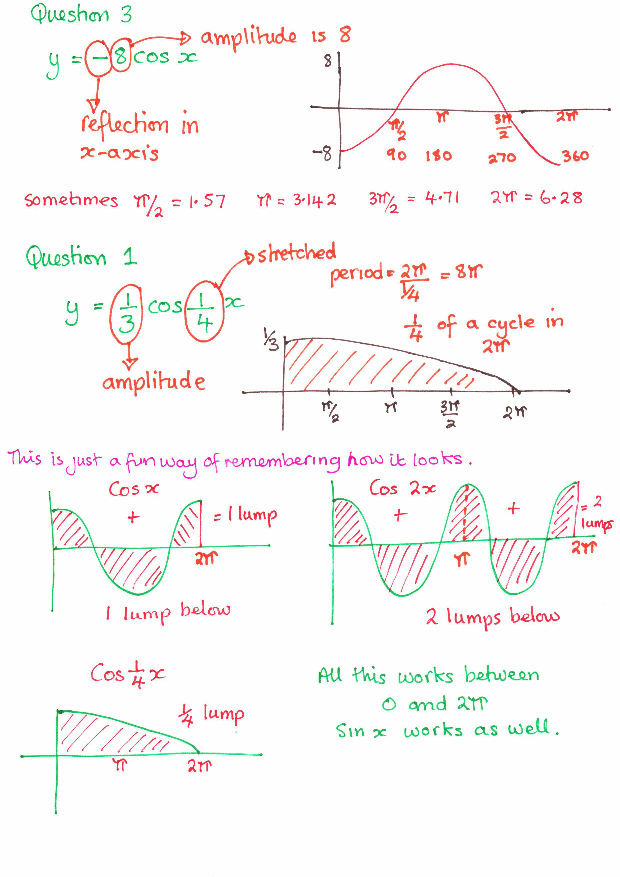 Question 3
y = -8 cos x
amplitude is 8
reflection in
x-axis
8
-8
π/2 π 3π/2 2π
90 180 270 360
Sometimes π/2 = 1.57 π = 3.142 3π/2 = 4.71 2π = 6.28
Question 1
y = 1/3 cos 1/4 x
stretched
amplitude
period = 2π/¼ = 8π
¼ of a cycle in
2π
1/3
π/2 π 3π/2 2π
This is just a fun way of remembering how it looks.
Cos x
+ = 1 lump
2π
1 lump below
Cos 2x
+ + = 2
lumps
π 2π
2 lumps below
Cos ¼ x
¼ lump
π 2π
All this works between
0 and 2π
Sin x works as well.